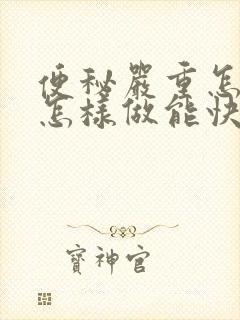 便秘嚴重怎
怎樣做能快
寶神官